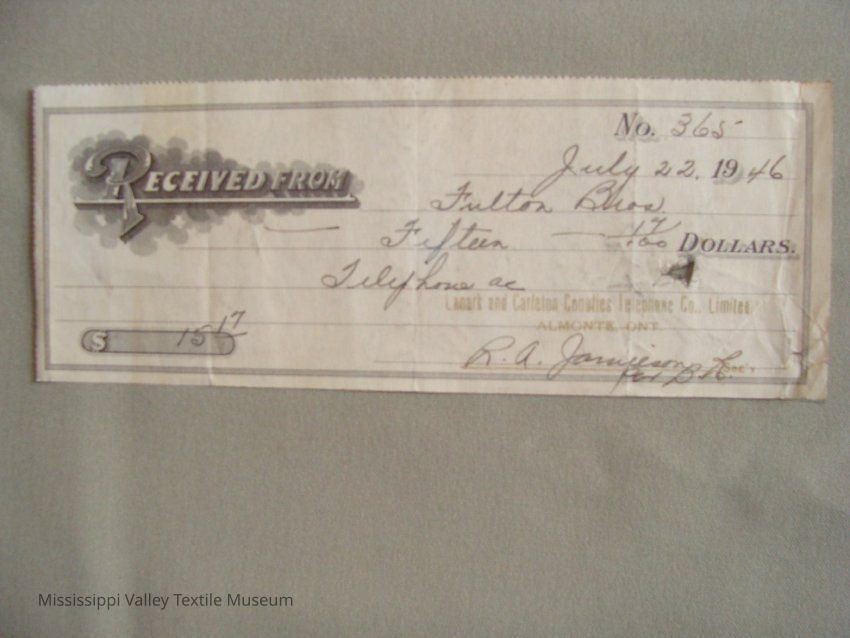 No. 365
July 22, 1946
RECEIVED FROM Fulton Bros.
Fifteen 17/100 DOLLARS.
Telephone ac
Lanark and Carleton Counties Telephone Co., Limited
ALMONTE, ONT.
$ 15 17
R. A. Jamieson Sec'y.
per
Mississippi Valley Textile Museum